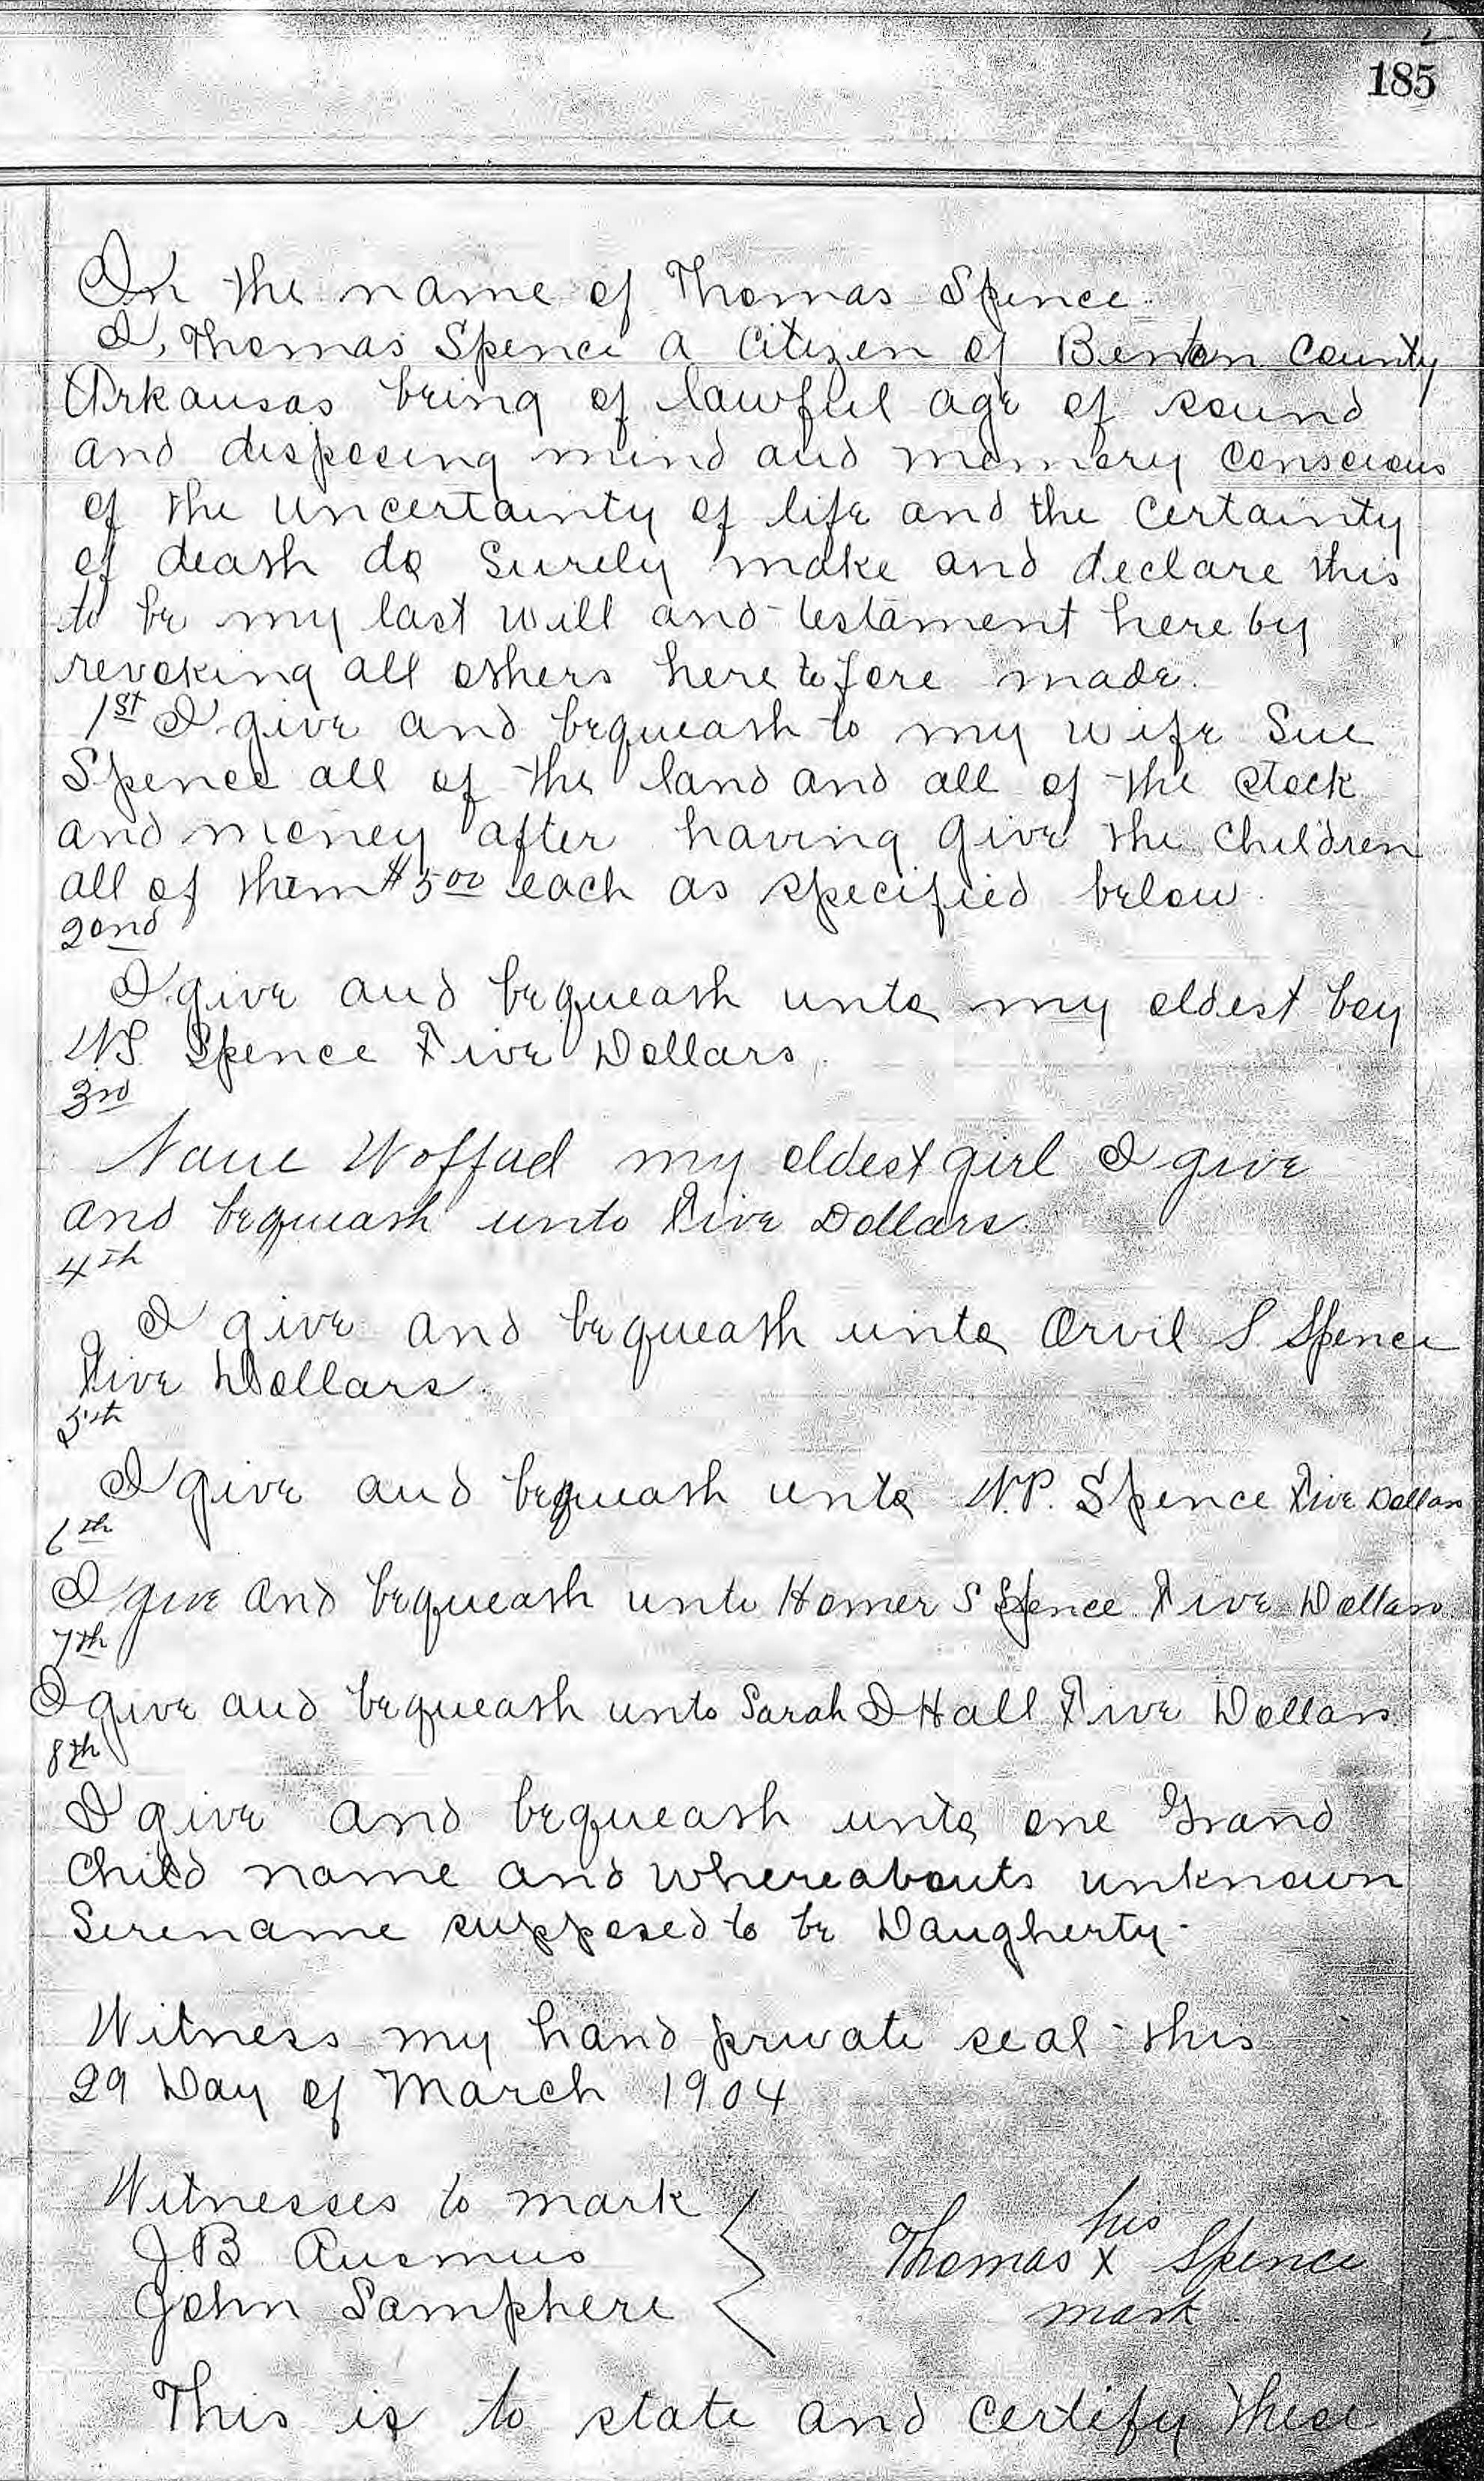 185
In the name of Thomas Spence
I, Thomas Spence a Citizen of Benton County
Arkansas being of lawful age of sound
and disposing mind and memory conscious
of the uncertainty of life and the certainty
of death do surely make and declare this
to be my last will and testament here by
revoking all others here to fore made.
1st I give and bequeath to my wife Sue
Spence all of the land and all of the stock
and money after having give the children
all of them $5 00 each as specified below
2ond
I give and bequeath unto my eldest boy
Spence Five Dollars.
3rd
my eldest girl I give
and bequeath unto Five Dollars.
4th
I give and bequeath unto Orvil S. Spence
Five Dollars.
5th
I give and bequeath unto Spence Five Dollars
6th
I give and bequeath unto Homer S Spence Five Dollars
7th
I give and bequeath unto Sarah I Hall Five Dollars
8th
I give and bequeath unto one Grand
Child name and whereabouts unknown
Serename supposed to be Daugherty.
Witness my hand private seal this
29 Day of March 1904
Witnesses to mark
J.B. Ausmus
John Samphere
his
Thomas X Spence
mark
This is to state and certify these